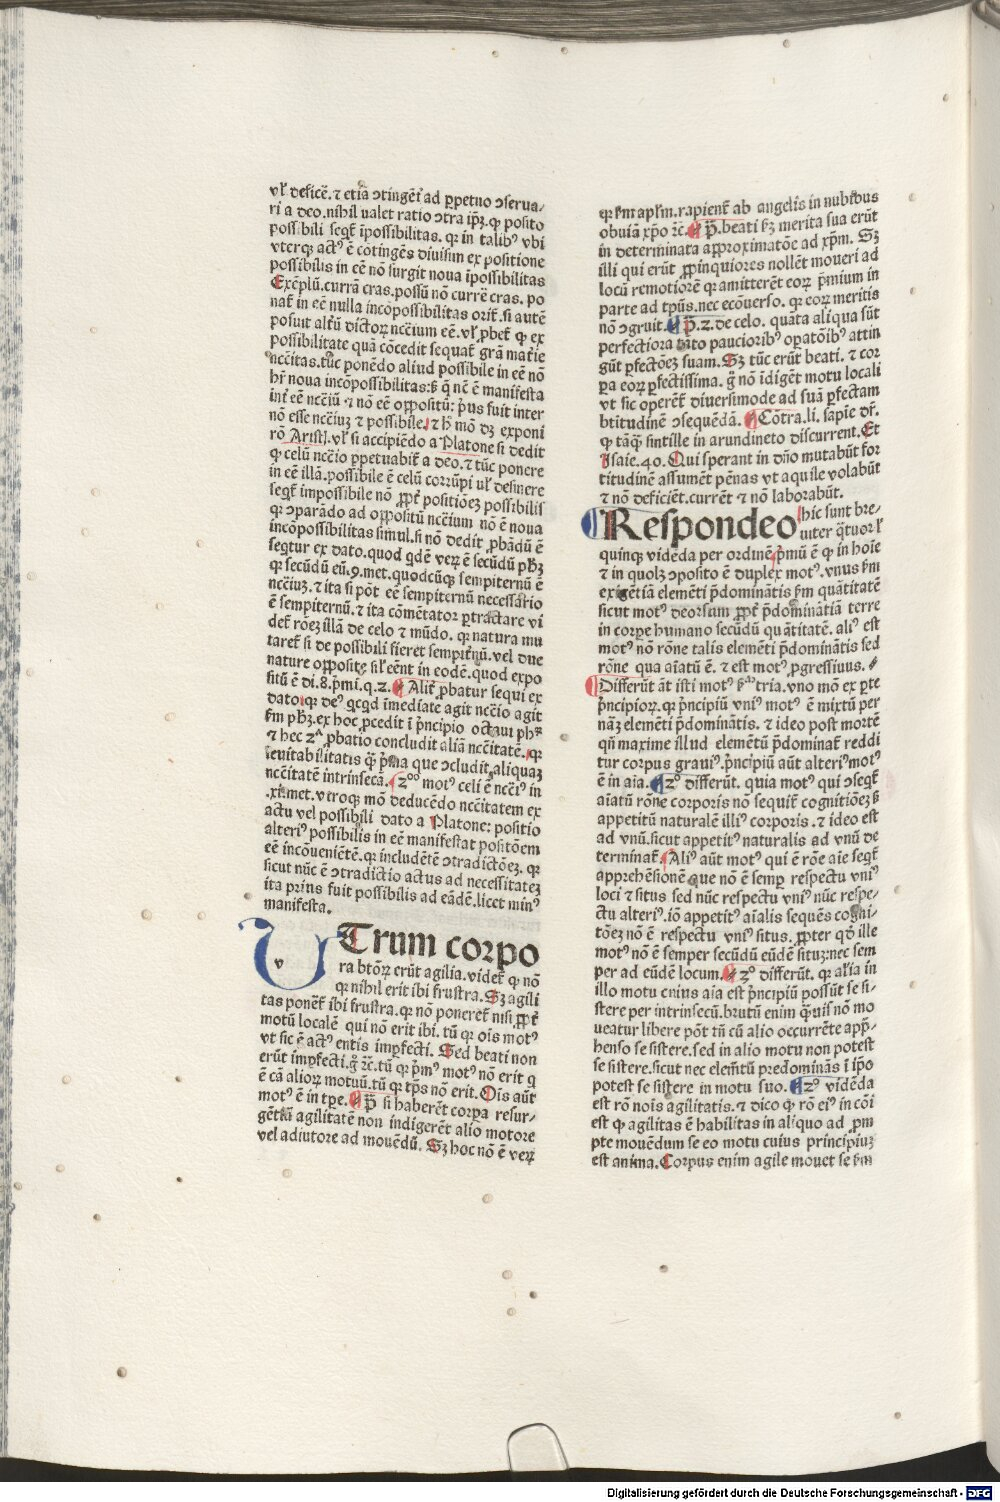 vľ desicē. ⁊ etiā ↄtingēt̄ ad ꝑpetuo ↄserua⸗
ri a deo. nihil ualet ratio ↄtra ip̄ꝫ. qꝫ posito
possibili seqt̄ īpossibilitas. qꝛ in talibꝰ vbi
vterqꝫ actꝰ ē cōtingēs diuisim ex positione
possibilis in eē nō surgit noua īpossibilitas
Exēplū. currā cras. possū nō currē cras. po
nat̄ in eē nulla incōpossibilitas orit̄. si autē
posuit altū dictoꝝ nccīium eē. vľ ꝓbet̄ qꝫ ex
possibilitate quā cōcedit sequat̄ grā mat̄ie
nccītas. tūc ponēdo aliud possibile in eē nō
hꝛ noua incōpossibilitas: ꝫ q̄ nē ē manifesta
int̄ eē nccīiū ⁊ nō eē oppositū: p̄us fuit inter
nō esse nccīiuꝫ ⁊ possibile. ⁊ h̄ mō dꝫ exponi
rō Aristľ. vľ si accipiēdo a Platone si dedit
qꝫ celū nccīo ꝑpetuabit̄ a deo. ⁊ tūc ponere
in eē illā. possibile ē celū corrūpi uľ desinere
seqt̄ impossibile nō ꝓpt̄ positiōeꝫ possibilis
qꝛ ↄparādo ad oppositū nccīium nō ē noua
incōpossibilitas simul. si nō dedit ꝓbādū ē
seqtur ex dato. quod qdē veꝝ ē secūdū pħꝫ
qꝛ secūdū eū. 9. met. quodcūqꝫ sempiternū ē
nccīiuꝫ. ⁊ ita si pōt eē sempiternū necessario
ē sempiternū. ⁊ ita cōmētator ꝑtractare vi
det̄ rōeꝫ illā de celo ⁊ mūdo. qꝛ natura mu
taret̄ si de possibili fieret sempit̄nū. vel due
nature opposite siľ eēnt in eodē. quod expo
sitū ē di. 8. p̄mi. q. 2. Alit̄ ꝓbatur sequi ex
dato. qꝛ deꝰ qcqd īmediate agit nccīo agit
ẜm pħꝫ. ex hoc ꝓcedit ī p̄ncipio octaui phꝛ
⁊ hec 2ᵃ ꝓbatio concludit aliā nccītatē. qꝛ
ieuitabilitatis q̄ p̄ma que ↄcludit aliquaꝫ
nccītatē intrinsecā. 2ᵒ motꝰ celi ē nccīꝰ in
.xi. met. vtroqꝫ mō deducēdo nccītatem ex
actu vel possibili dato a Platone: positio
alterꝰ possibilis in eē manifestat positōem
eē incōueniētē. qꝛ includētē ↄtradictōeꝫ. qꝛ
sicut nūc ē ↄtradictio actus ad necessitateꝫ
ita prius fuit possibilis ad eādē. licet minꝰ
manifesta.
VTrum corpo
ra btōꝝ erūt agilia. videt̄ qꝫ nō
qꝛ nihil erit ibi frustra. Sꝫ agili
tas ponēt̄ ibi frustra. qꝛ nō poneret̄ nisi ꝓpt̄
motū localē qui nō erit ibi. tū qꝛ oīs motꝰ
vt sic ē actꝰ entis imꝑfecti. Sed beati non
erūt imꝑfecti. g̊ ⁊c̄. tū qꝛ p̄mꝰ motꝰ nō erit q
ē cā alioꝝ motuū. tū qꝛ tp̄s nō erit. Oīs aūt
motꝰ ē in tpe. P̄ si haberēt corpa resur⸗
gētiū agilitatē non indigerēt alio motore
vel adiutore ad mouēdū. Sꝫ hoc nō ē veꝝ
obuiā xp̄o ⁊c̄. P̄. beati ẜꝫ merita sua erūt
in determinata approximatōe ad xp̄m. Sꝫ
illi qui erūt ꝓpinquiores nollēt moueri ad
locū remotiorē qꝛ amitterēt eoꝝ p̄mium in
parte ad tp̄us. nec ecōuerso. qꝛ eoꝝ meritis
nō ↄgruit. P̄. 2. de celo. quāta aliqua sūt
perfectiora tāto pauciorībꝰ oꝑatōibꝰ attin
gūt ꝑfectōeꝫ suam. Sꝫ tūc erūt beati. ⁊ cor
pa eoꝝ ꝑfectissima. g̊ nō īdigēt motu locali
vt sic operēt̄ diuersimode ad suā ꝑfectam
btitudinē ↄsequēdā. Cōtra. li. sapie dr̄.
qꝫ tāqꝫ̄ sintille in arundineto discurrent. Et
Isaie. 40. Qui sperant in dn̄o mutabūt for
titudinē assumēt pēnas vt aquile volabūt
⁊ nō deficiēt. currēt ⁊ nō laborabūt.
Respondeo hic sunt bre⸗
uiter q̄tuor ľ
quinqꝫ vidēda per ordinē p̄mū ē qꝫ in hoīe
⁊ in quolꝫ ↄposito ē duplex motꝰ. vnus ẜm
exigētiā elemēti p̄dominātis ẜm quātitatē
sicut motꝰ deorsum ꝓpt̄ p̄dominātiā terre
in corpe humano secūdū quātitatē. aliꝰ est
motꝰ nō rōne talis elemēti p̄dominātis sed
rōne qua aīatū ē. ⁊ est motꝰ ꝓgressiuus.
Differūt āt isti motꝰ tria. vno mō ex ꝑte
p̄ncipioꝝ. qꝛ p̄ncipiū vniꝰ motꝰ ē mixtū per
nāꝫ elemēti p̄dominātis. ⁊ ideo post mortē
qn̄ maxime illud elemētū p̄dominat̄ reddi
tur corpus grauiꝰ. p̄ncipiū aūt alterꝰ motꝰ
ē in aīa. 2ᵒ differūt. quia motꝰ qui ↄseqt̄
aīatū rōne corporis nō sequit̄ cognitiōeꝫ ẜ
appetitū naturalē illiꝰ corporis. ⁊ ideo est
ad vnū. sicut appetitꝰ naturalis ad vnū de
terminat̄. Aliꝰ aūt motꝰ qui ē rōe aīe seqt̄
apprehēsionē que nō ē semꝑ respectu vniꝰ
loci ⁊ situs sed nūc respectu vniꝰ nūc respe⸗
ctu alterꝰ. iō appetitꝰ aīalis sequēs cogni⸗
tōeꝫ nō ē respectu vniꝰ situs. ꝓpter qd̄ ille
motꝰ nō ē semper secūdū eūdē situꝫ: nec sem
per ad eūdē locum. 2ᵒ differūt. qꝛ aľia in
illo motu cuius aīa est p̄ncipiū possūt se si⸗
stere per intrinsecū. brutū enim q̄uis nō mo
ueatur libere pōt tū cū alio occurrēte app̄⸗
henso se sistere. sed in alio motu non potest
se sistere. sicut nec elem̄tū predominās ī ip̄o
potest se sistere in motu suo. 2ᵒ vidēda
est rō noīs agilitatis. ⁊ dico qꝫ rō eiꝰ in cōi
est qꝫ agilitas ē habilitas in aliquo ad ꝓm
pte mouēdum se eo motu cuius principiuꝫ
est anima. Corpus enim agile mouet se ẜm
Digitalisierung gefördert durch die Deutsche Forschungsgemeinschaft - DFG